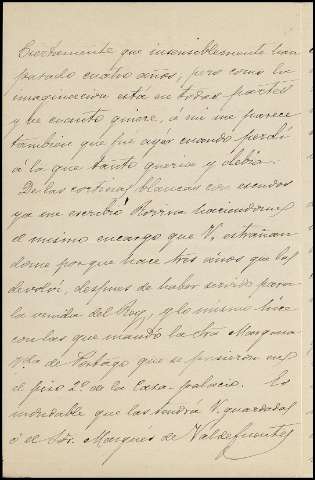 Ciertamente que insensiblemente han
pasado cuatro años, pero como la
imaginacion está en todas partes
y ve cuanto quiere, á mi me parece
tambien que fue ayer cuando perdí
á la que tanto queria y debia.
De las cortinas blancas con escudos
ya me escribió Rovira haciendome
el mismo encargo que V. estrañan
dome porque hace tres años que las
devolví, despues de haber servido para
la venida del Rey, y lo mismo hice
con las que mandó la Sra Marquesa
Vda de Portago que se pusieron en
el piso 2º de la Casa-palacio. Es
indudable que las tendrá V. guardadas
ó el Sor. Marqués de Valdefuentes